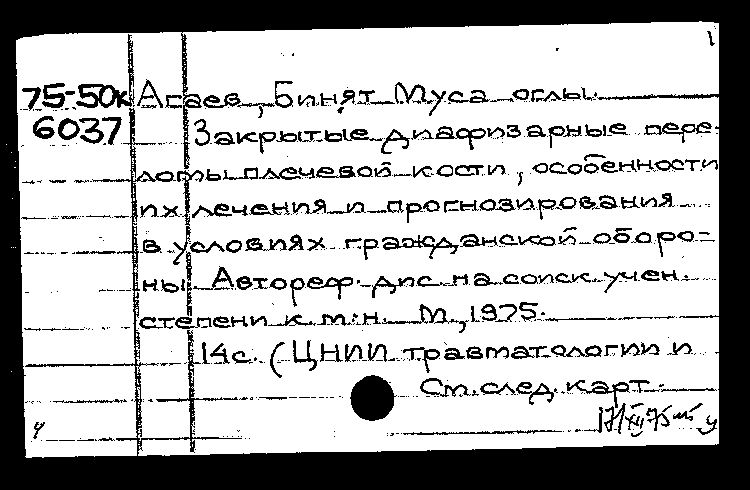 1
75-50к Агаев, Бинят Муса оглы.
6037 Закрытые диафизарные пере-
ломы плечевой кости, особенности
их лечения и прогнозирования
в условиях гражданской оборо-
ны. Автореф. дис. на соиск. учен.
степени к.м.н. М., 1975.
14с. (ЦНИИ травматологии и
См. след. карт.
17/XII 75 у